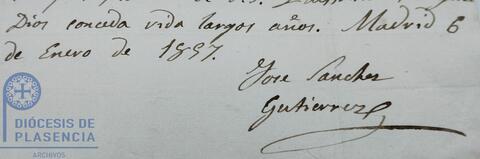 Dios conceda vida largos años. Madrid 6
de Enero de 1857.
Jose Sanchez
Gutierrez
DIÓCESIS DE
PLASENCIA
ARCHIVOS